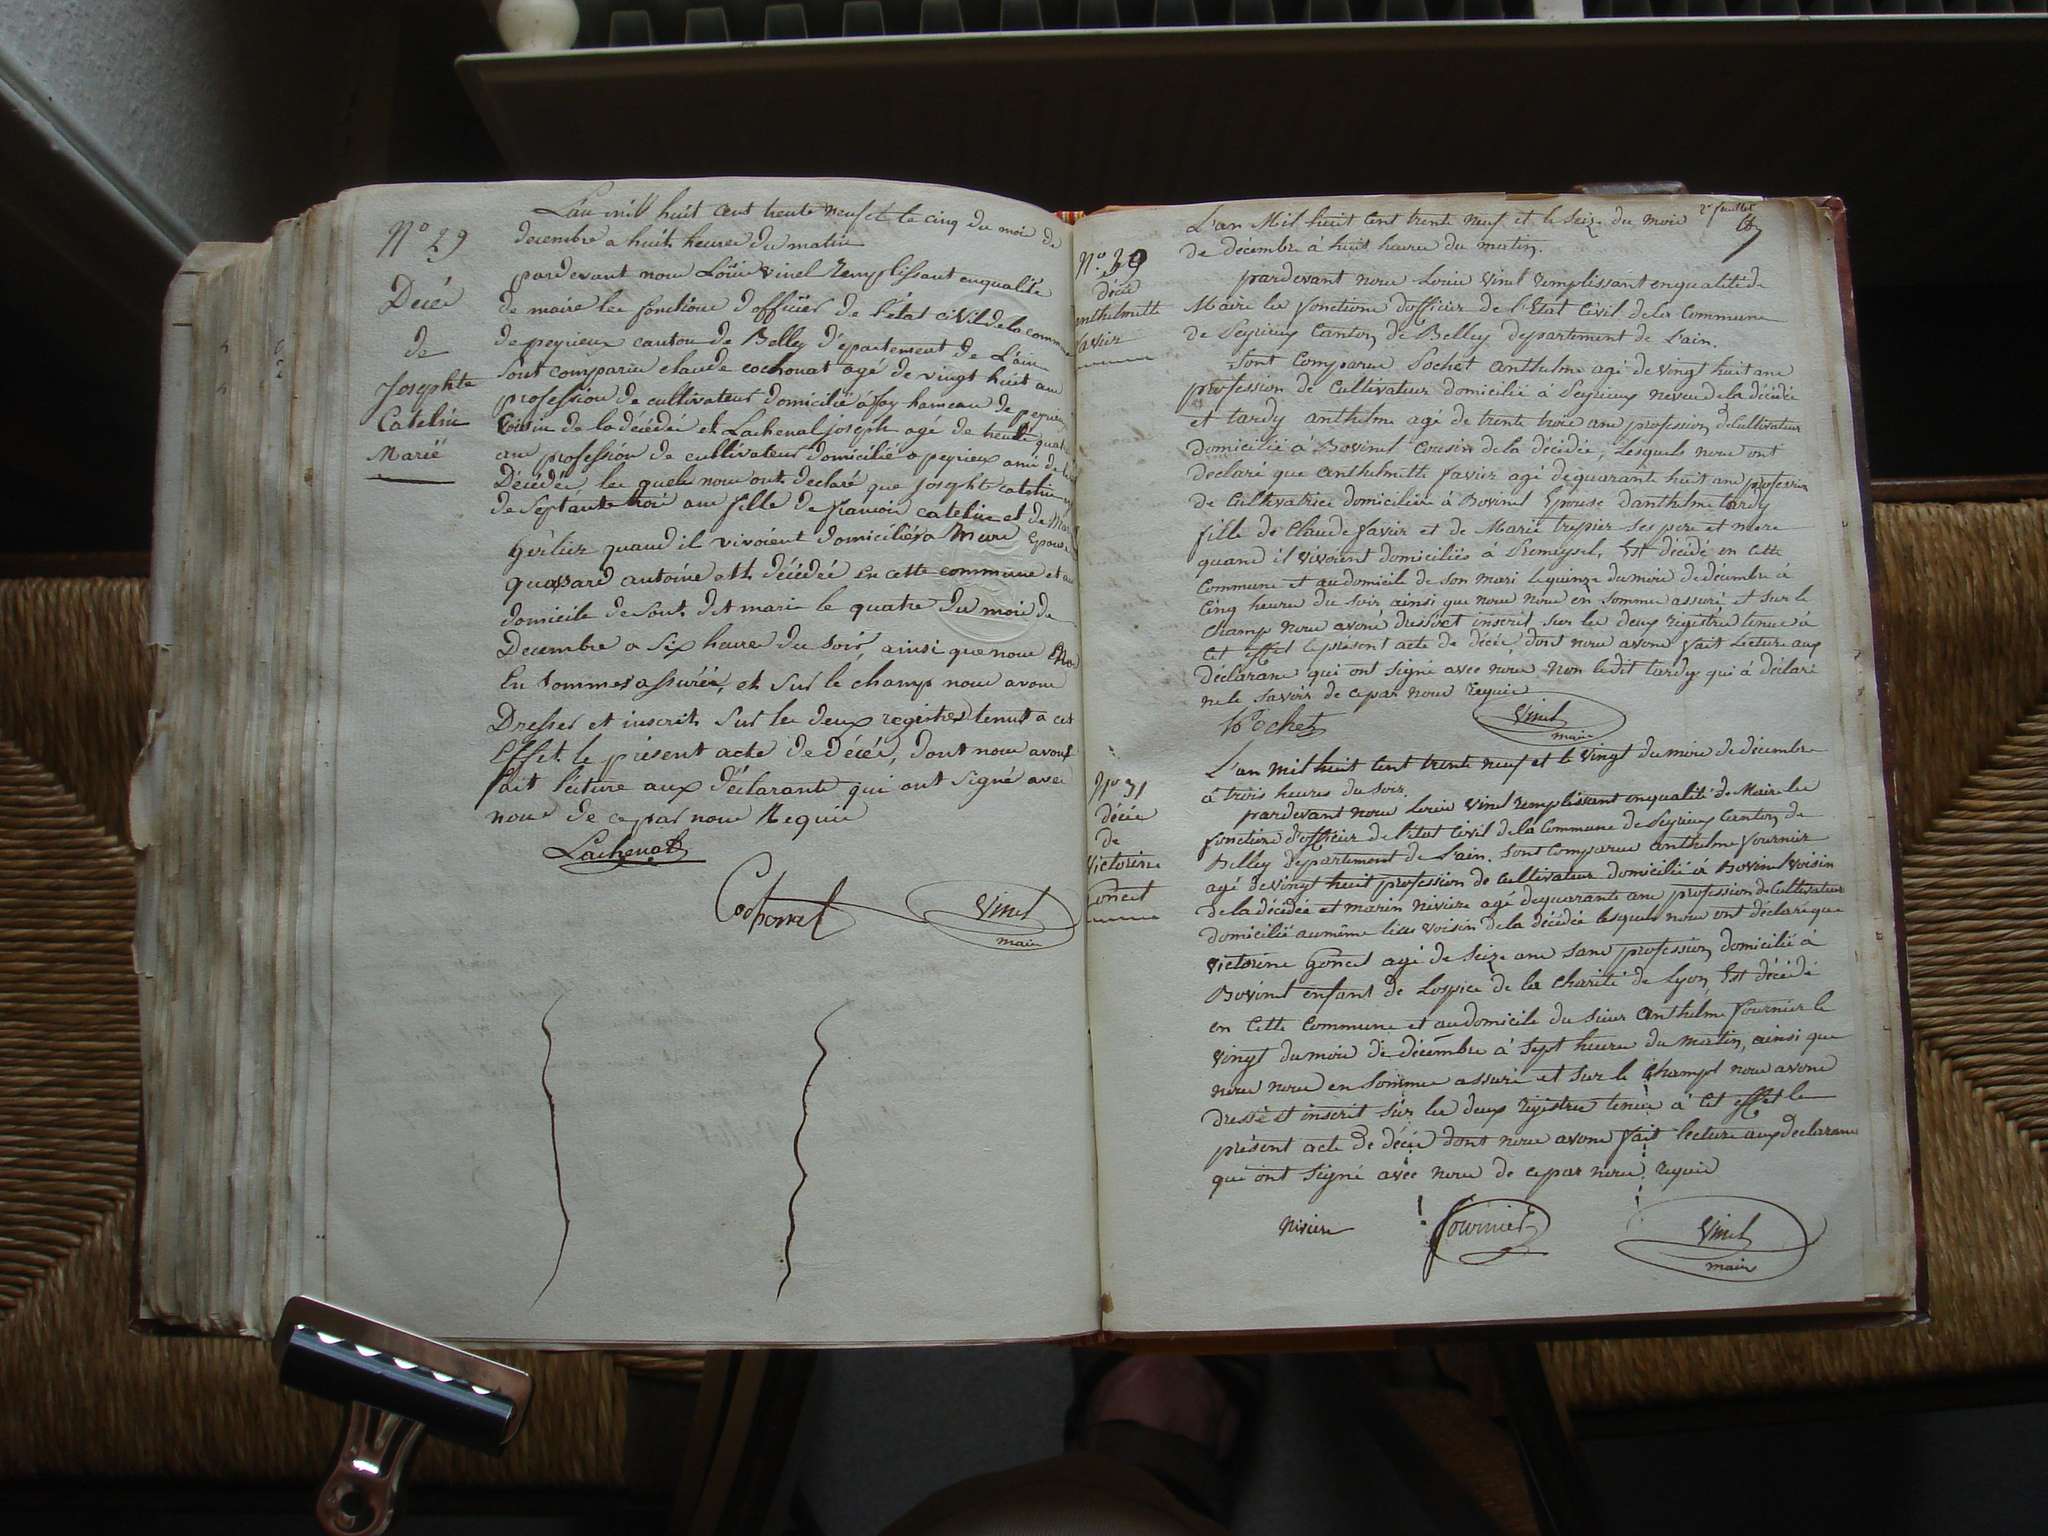 N° 29
Décé
de
Josephte
Catelin
Marië
L'an mil huit cent trente neuf et le cinq du mois de
decembre a huit heures du matin
pardevant nous Loüis vinel Remplissant en qualité
de maire les fonctions d'officier de l'état civil de la commune
de peyrieux canton de Belley département de L'ain
Sont comparus claude cochonat agé de vingt huit ans
profession de cultivateur domicilié a fay hameau de peyrieux
voisin de la décédée et Lachenal joseph agé de trente quatre
ans profession de cultivateur domicilié a peyrieux ami de la
Décédée les quels nous ont declaré que josephte catelin
de Septante trois ans fille de francois catelin et de
Gerlier quand il vivoient domiciliés a Mure Epouse
quassard antoine est décédée en cette commune et au
domicile de sont dit mari le quatre du mois de
Decembre a Six heures du soir, ainsi que nous nous
En Sommes assurée, et sur le champ nous avons
Dresser et inscrit sur les deux registres tenut a cet
Effet le présent acte de décés, dont nous avons
fait lecture aux déclarants qui ont signé avec
nous de ce par nous Requis
Lachenal
Cochonat
Vinel
maire
2e feuillet
N° 30
décés
anthelmette
favier
L'an Mil huit cent trente neuf et le seize du mois
de décembre à huit heures du matin.
pardevant nous Louis Vinel remplissant en qualité de
Maire les fonctions d'officier de l'Etat Civil de la Commune
de Peyrieux Canton de Belley département de L'ain.
Sont Comparus Pochet anthelme agé de vingt huit ans
profession de Cultivateur domicilié à Peyrieux neveu de la décédé
et tardy anthelme agé de trente trois ans profession de Cultivateur
domicilié à Bovinel Cousin de la décédée, Lesquels nous ont
declaré que anthelmette favier agé de quarante huit ans profession
de Cultivatrice domiciliée à Bovinel Epouse d'anthelme tardy
fille de Claude favier et de Marie trepier ses pere et mere
quand il vivoient domiciliés à Premeysel, Est décédé en cette
Commune et au domicile de son mari le quinze du mois de décembre à
Cinq heures du soir ainsi que nous nous en sommes assuré et sur le
champ nous avons dressé et inscrit sur les deux registres tenus à
cet effet le présent acte de décés, dont nous avons fait Lecture aux
déclarans qui ont signé avec nous non ledit tardy qui à déclaré
ne le savoir de ce par nous requis
Pochet
Vinel
maire
N° 31
décés
de
Victorine
Goncet
L'an mil huit cent trente neuf et le vingt du mois de décembre
à trois heures du soir.
pardevant nous Louis Vinel remplissant en qualité de Maire les
fonctions d'officier de l'état Civil de la Commune de Peyrieux Canton de
Belley département de L'ain. Sont Comparus anthelme fournier
agé de vingt huit profession de cultivateur domicilié à Bovinel voisin
de la décédée et marin niviere agé de quarante ans profession de Cultivateur
domicilié au même lieu voisin de la décédée lesquels nous ont déclaré que
victorine Goncet agé de seize ans sans profession domicilié à
Bovinel enfant de Lospice de la charité de Lyon, Est décédé
en cette Commune et au domicile du sieur anthelme fournier le
vingt du mois de décembre à sept heures du matin, ainsi que
nous nous en sommes assuré et sur le champt nous avons
dressé et inscrit sur les deux registres tenus à cet effet le
présent acte de décés dont nous avons fait lecture aux declarans
qui ont signé avec nous de ce par nous requis
Niviere
fournier
Vinel
maire